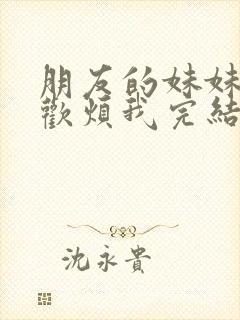 朋友的妹妹
歡煩我完結
沈永貴